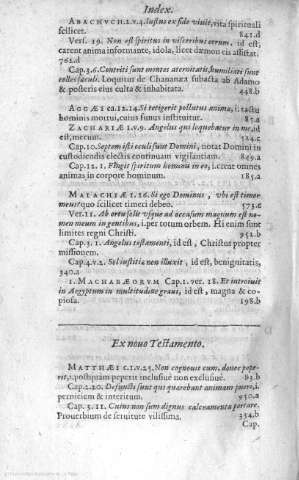 Index.
ABACHVCH.2.v.4. Iustus ex fide viuit, vita spirituali
scilicet. 841.d
Vers. 19. Non est spiritus in visceribus eorum, id est,
carent anima informante, idola, licet dæmon eis assistat.
762.d
Cap.3.6. Contriti sunt montes æternitatis, humiliati sunt
colles sæculi. Loquitur de Chananæa subacta ab Adamo
& posteris eius culta & inhabitata. 448.b
AGGÆI ca.12.14. Si tetigerit pollutus anima, i. tactu
hominis mortui, cuius funus instituitur. 87.a
ZACHARIÆ 1.v.9. Angelus qui loquebatur in me, id
est, mecum. 324.c
Cap.10. Septem isti oculi sunt Domini, notat Domini in
custodiendis electis continuam vigilantiam. 849.a
Cap.12.1. Fingit spiritum hominis in eo, i. creat omnes
animas in corpore hominum. 185.a
MALACHIÆ 1.16. Si ego Dominus, vbi est timor
meus? quo scilicet timeri debeo. 573.c
Ver.11. Ab ortu solis vsque ad occasum magnum est no-
men meum in gentibus, i. per totum orbem. Hi enim sunt
limites regni Christi. 951.b
Cap.3.1. Angelus testamenti, id est, Christus propter
missionem.
Cap.4.v.2. Sol iustitiæ non illuxit, id est, benignitatis,
340.a
1. MACHABÆORVM Cap.1. ver. 18. Et introiuit
in Aegyptum in multitudine graui, id est, magna & co-
piosa. 198.b
Ex nouo Testamento.
MATTHÆI c.1.v.25. Non cognouit eam, donec pepe-
rit, i. postquam peperit inclusiuè non exclusiuè. 83.b
Cap.2.20. Defuncti sunt qui quærebant animam pueri, i.
perniciem & interitum. 950.a
Cap. 3. 11. Cuius non sum dignus calceamenta portare.
Prouerbium de seruitute vilissima. 354.b
Cap.